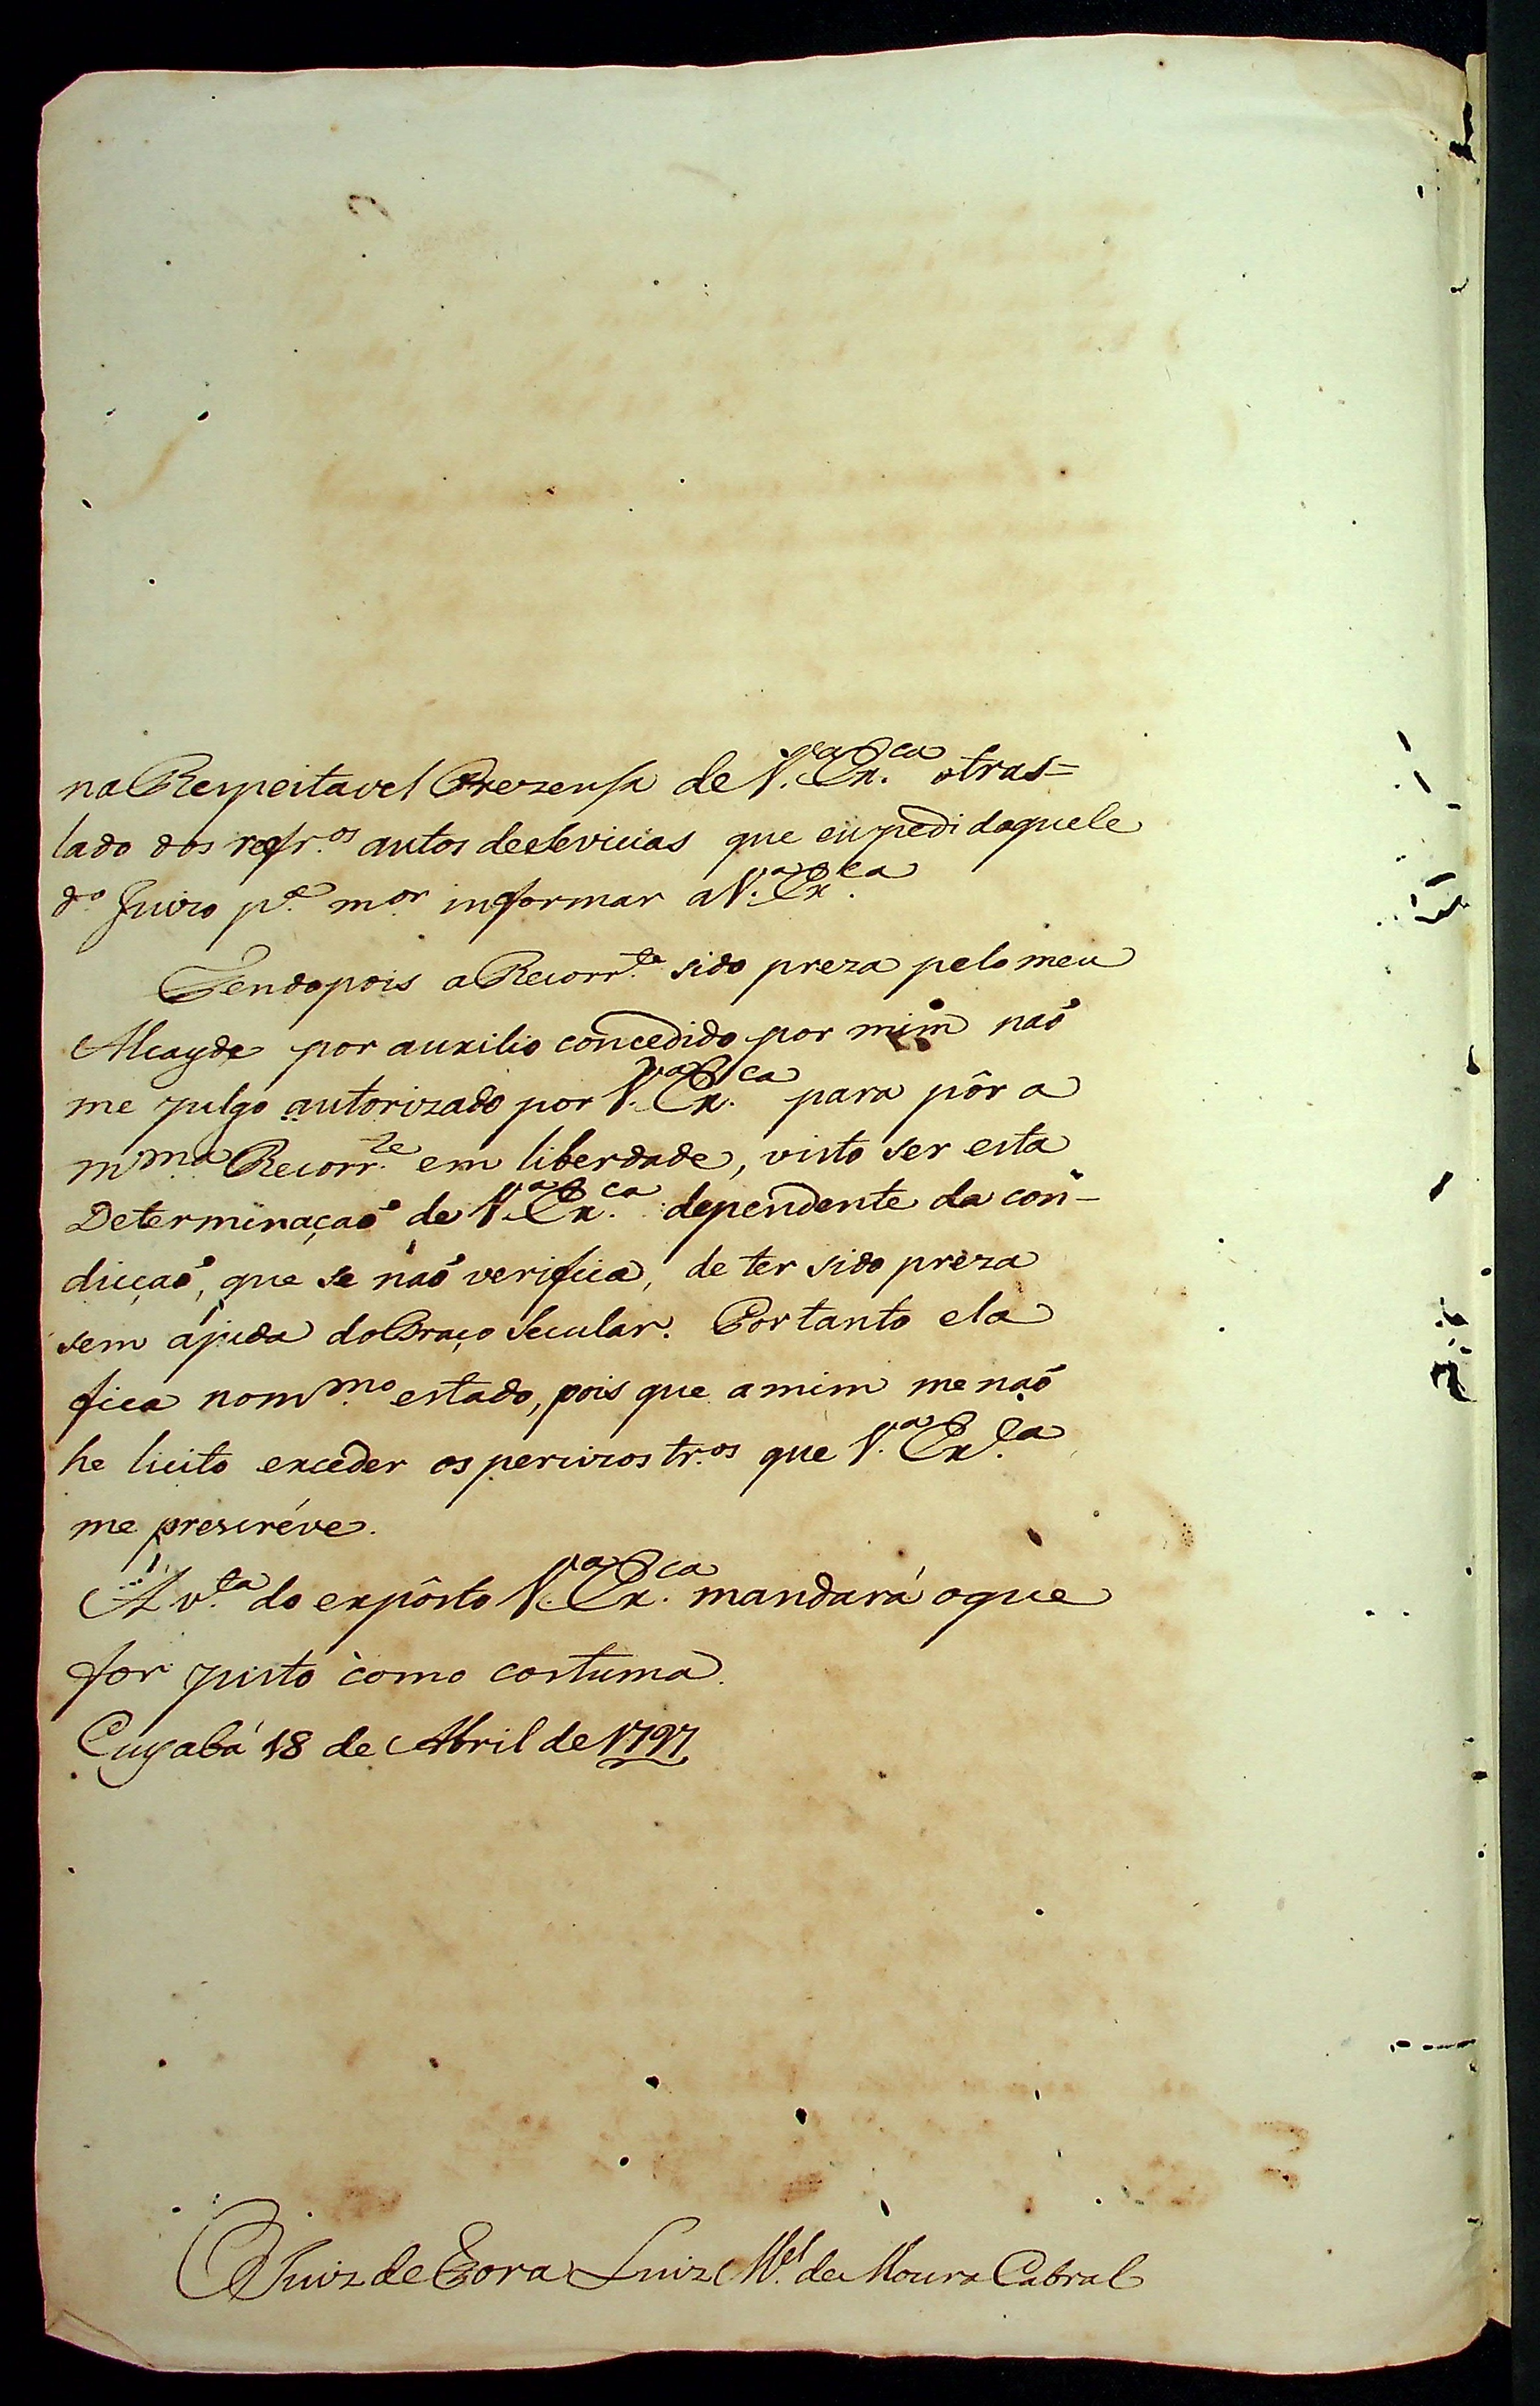 na Respeitavel Prezensa de V.ª Ex.ca otras=
lado dos refr.os autos desevicias que eu pedi daquele
d.º Juizo p.ª m.or informar a V.ª Ex.ca
Tendo pois a Recorr.te sido preza pelo meu
Alcayde por auxilio concedido por mim naõ
me julgo autorizado por V.ª Ex.ca para pôr a
m.ma Recorr.te em liberdade, visto ser esta
Determinaçaõ de V.ª Ex.ca dependente da con-
dicçaõ, que se naõ verifica, de ter sido preza
sem ajuda do Braço Secular. Portanto ela
fica no m.mo estado, pois que a mim me naõ
he licito exceder os percizos tr.os que V.ª Ex.ca
me prescréve.
Á v.ta do expôsto V.ª Ex.ca mandará o que
for justo como costuma.
Cuyabá 18 de Abril de 1797
O Juiz de Fora Luiz M.el de Moura Cabral